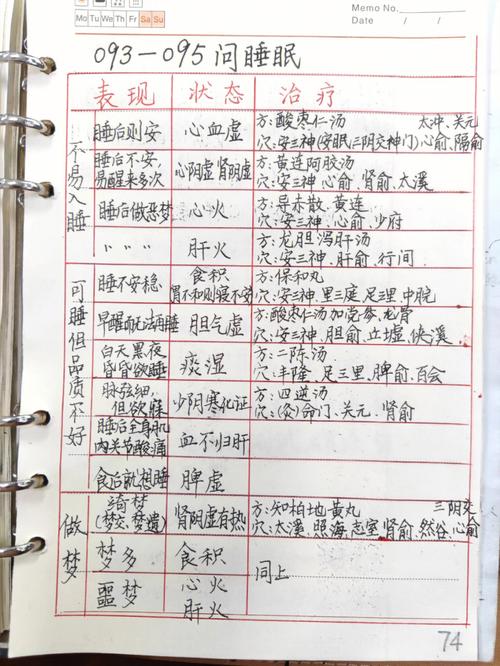 Memo No.
Mo Tu We Th Fr Sa Su
Date / /
093-095 问睡眠
表现 状态 治疗
不易入睡
睡后则安 心血虚 方:酸枣仁汤 太冲、关元
穴:安三神(安眠、三阴交神门)心俞、隔俞
睡后不安, 易醒来多次 心阴虚 肾阴虚 方:黄连阿胶汤
穴:安三神 心俞、肾俞、太溪
睡后做恶梦 心火 方:导赤散、黄连
穴:安三神、心俞、少府
〃 〃 〃 肝火 方:龙胆泻肝汤
穴:安三神、肝俞、行间
可睡但品质不好
睡不安稳 食积 胃不和则寝不安 方:保和丸
穴:安三神、里三庭、足三里、中脘
早醒而无法再睡 胆气虚 方:酸枣仁汤加党参、龙骨
穴:安三神、胆俞、丘墟、侠溪
白天黑夜 昏昏欲睡 痰湿 方:二陈汤
穴:丰隆、足三里、脾俞、百会
脉弦细, 但欲寐 少阴寒化证 方:四逆汤
穴:(灸)命门、关元、肾俞
睡后全身肌肉关节酸痛 血不归肝
食后就想睡 脾虚
做梦
绮梦 (梦交、梦遗) 肾阴虚有热 方:知柏地黄丸 三阴交
穴:太溪、照海、志室、肾俞、然谷、心俞
梦多 食积 同上
噩梦 心火
肝火
74